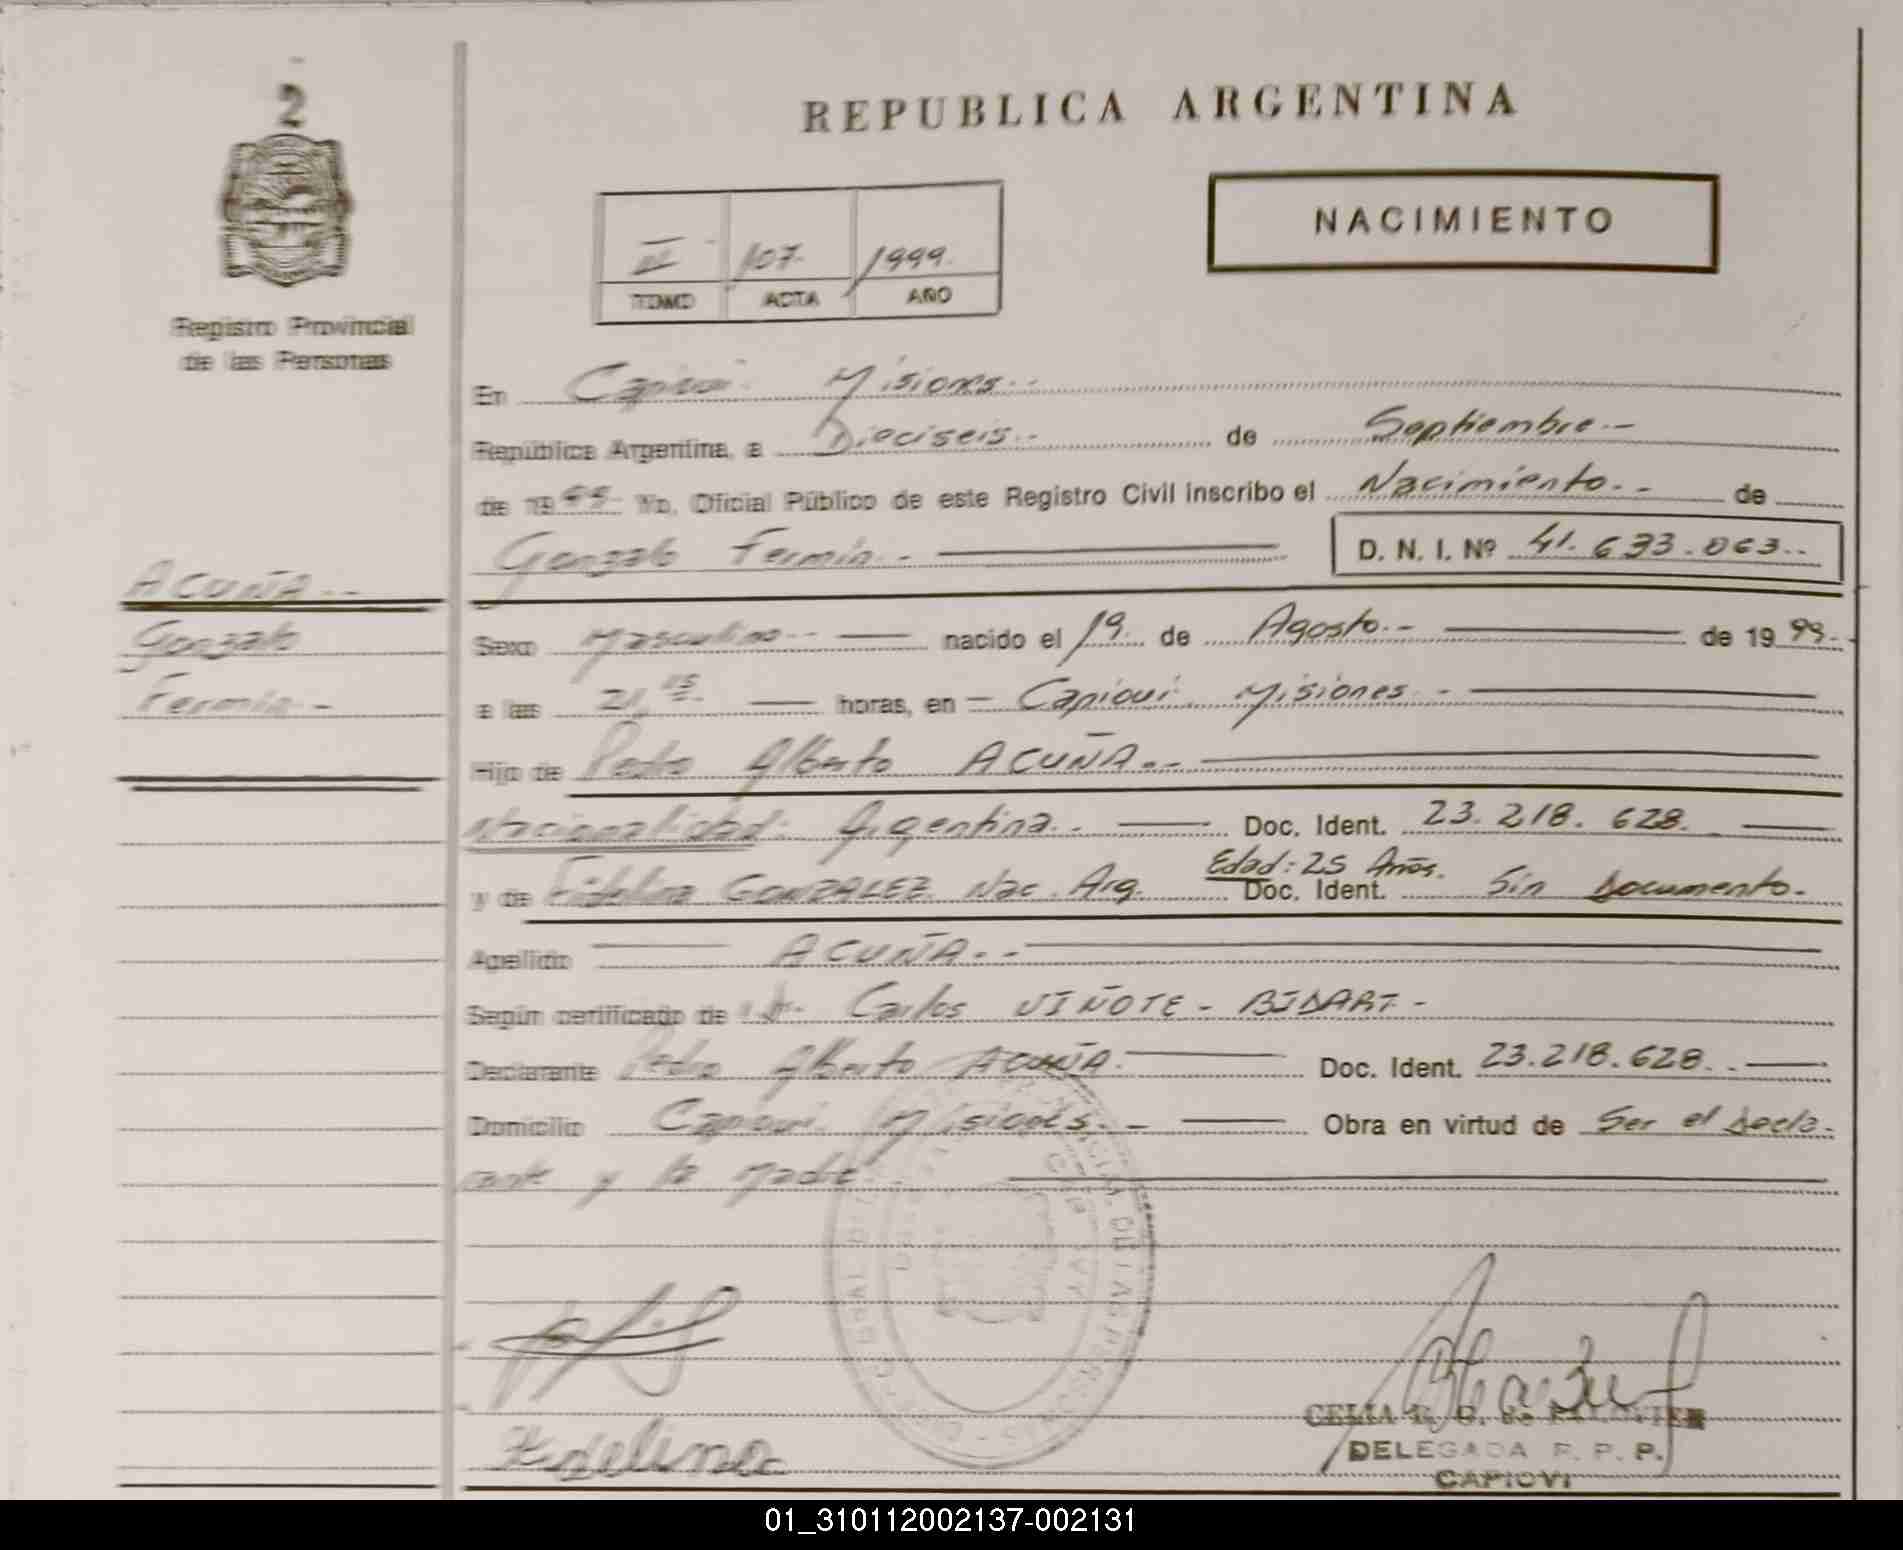 2
REPUBLICA ARGENTINA
NACIMIENTO
III 107 1999
TOMO ACTA AÑO
Registro Provincial
de las Personas
En Capiovi Misiones.-
República Argentina, a Dieciseis.- de Septiembre.-
de 1999 Yo, Oficial Público de este Registro Civil inscribo el Nacimiento.- de
Gonzalo Fermín.- D. N. I. Nº 41.633.063.-
ACUÑA.-
Gonzalo
Fermín.-
Sexo Masculino.- nacido el 19. de Agosto.- de 1999.-
a las 21,15 horas, en - Capiovi Misiones.-
Hijo de Pedro Alberto ACUÑA.-
Nacionalidad: Argentina.- Doc. Ident. 23.218.628.
Edad: 25 Años.
y de Fidelina GONZALEZ. Nac. Arg. Doc. Ident. Sin Documento.-
Apellido ACUÑA.-
Según certificado de Dr. Carlos VIÑOTE - BIDART -
Declarante Pedro Alberto ACUÑA.- Doc. Ident. 23.218.628.-
Domicilio Capiovi Misiones.- Obra en virtud de Ser el decla-
rante y la madre.
Fidelina
CELIA
DELEGADA R. P. P.
CAPIOVI
01_310112002137-002131